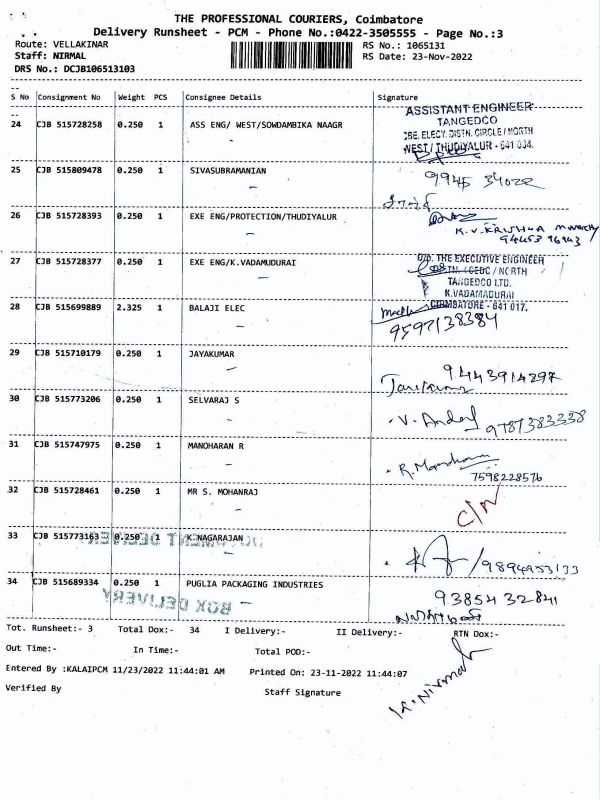 THE PROFESSIONAL COURIERS, Coimbatore
Delivery Runsheet - PCM - Phone No.:0422-3505555 - Page No.:3
Route: VELLAKINAR RS No.: 1065131
Staff: NIRMAL RS Date: 23-Nov-2022
DRS No.: DCJB106513103
S No Consignment No Weight PCS Consignee Details Signature
ASSISTANT ENGINEER
24 CJB 515728258 0.250 1 ASS ENG/ WEST/SOWDAMBIKA NAAGR TANGEDCO
CBE. ELECY. DISTN. CIRCLE / NORTH
WEST / THUDIYALUR - 641 034.
25 CJB 515809478 0.250 1 SIVASUBRAMANIAN 9945 34022
26 CJB 515728393 0.250 1 EXE ENG/PROTECTION/THUDIYALUR
K.V. KRISHNA
27 CJB 515728377 0.250 1 EXE ENG/K.VADAMUDURAI O/o. THE EXECUTIVE ENGINEER
CEDC / NORTH
TANGEDCO LTD.
K.VADAMADURAI
COIMBATORE - 641 017.
28 CJB 515699889 2.325 1 BALAJI ELEC
9597138384
29 CJB 515710179 0.250 1 JAYAKUMAR 9443914297
30 CJB 515773206 0.250 1 SELVARAJ S V. 9787383338
31 CJB 515747975 0.250 1 MANOHARAN R R. Manoharan
7598228576
32 CJB 515728461 0.250 1 MR S. MOHANRAJ C/N
33 CJB 515773163 0.250 1 K.NAGARAJAN 9894953133
34 CJB 515689334 0.250 1 PUGLIA PACKAGING INDUSTRIES 93854 32841
BOX DELIVERY
Tot. Runsheet:- 3 Total Dox:- 34 I Delivery:- II Delivery:- RTN Dox:-
Out Time:- In Time:- Total POD:-
Entered By :KALAIPCM 11/23/2022 11:44:01 AM Printed On: 23-11-2022 11:44:07
Verified By Staff Signature
K. Nirmal